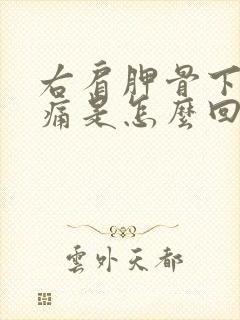 右肩胛骨下
痛是怎麼回
雲外天都